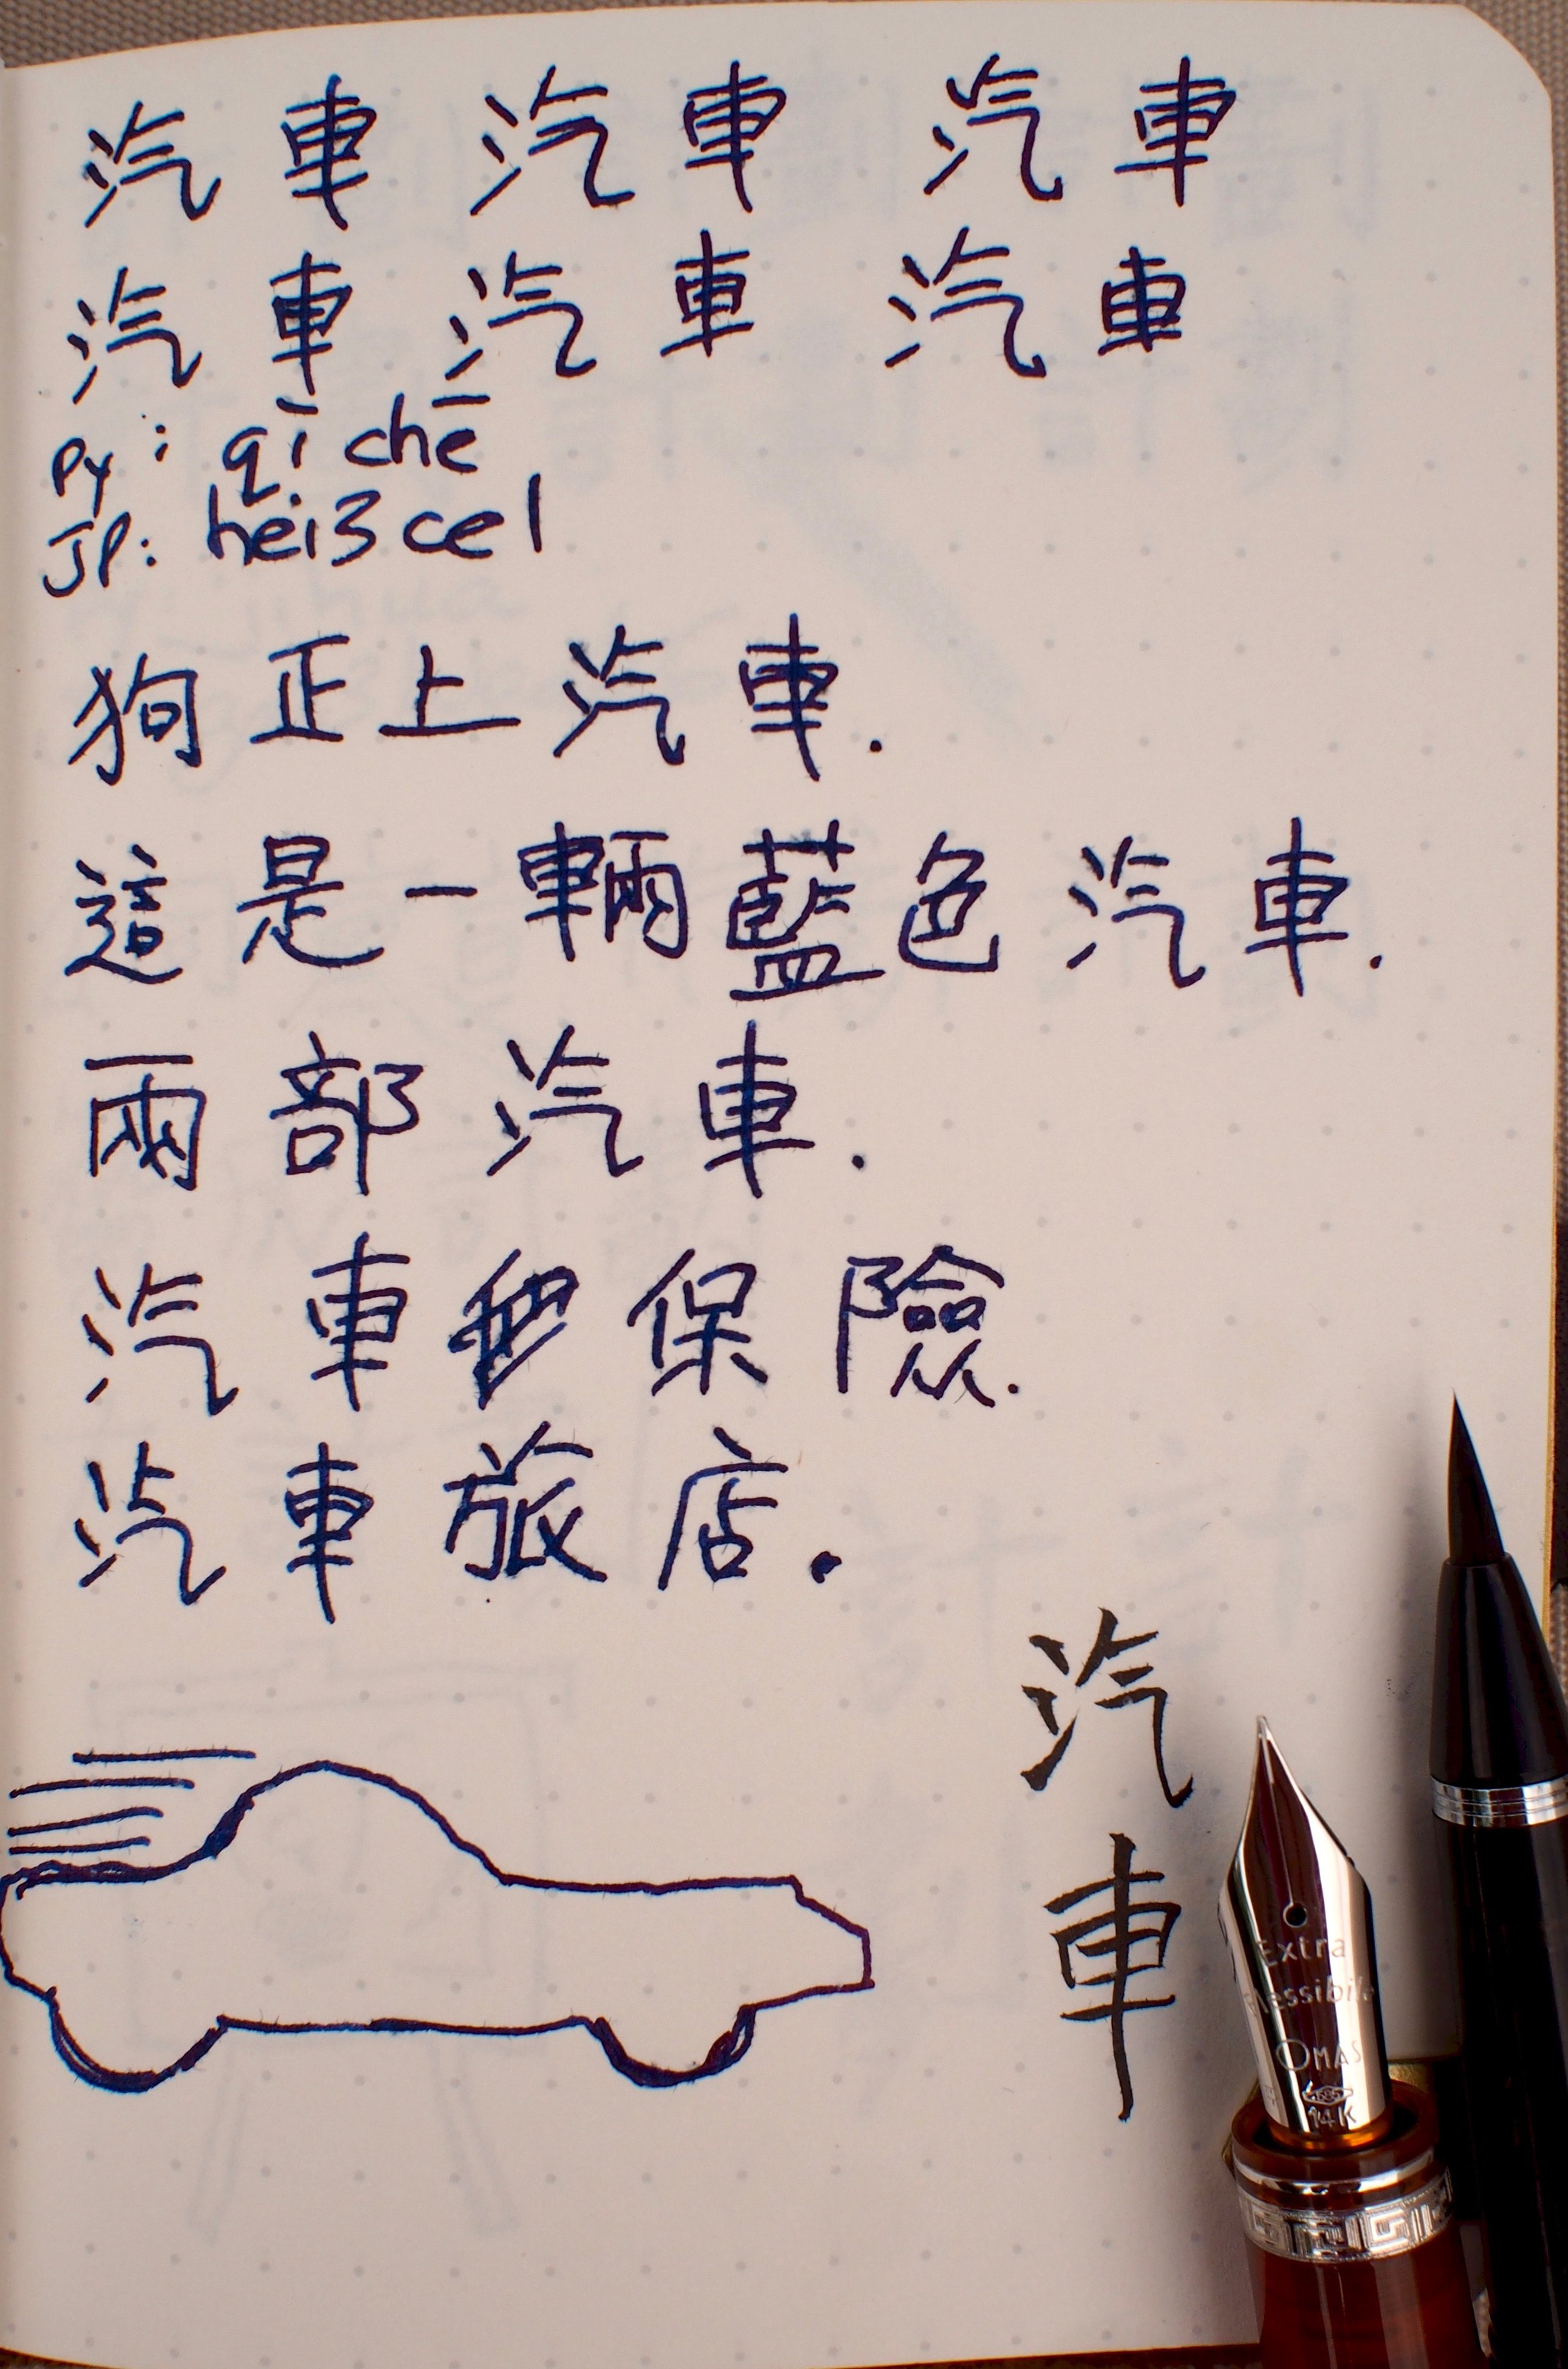 汽車 汽車 汽車
汽車 汽車 汽車
Py: qì chē
JP: hei3 ce1
狗正上汽車.
這是一輛藍色汽車.
兩部汽車.
汽車保險.
汽車旅店.
汽
車
Extra
Flessibile
OMAS
14K